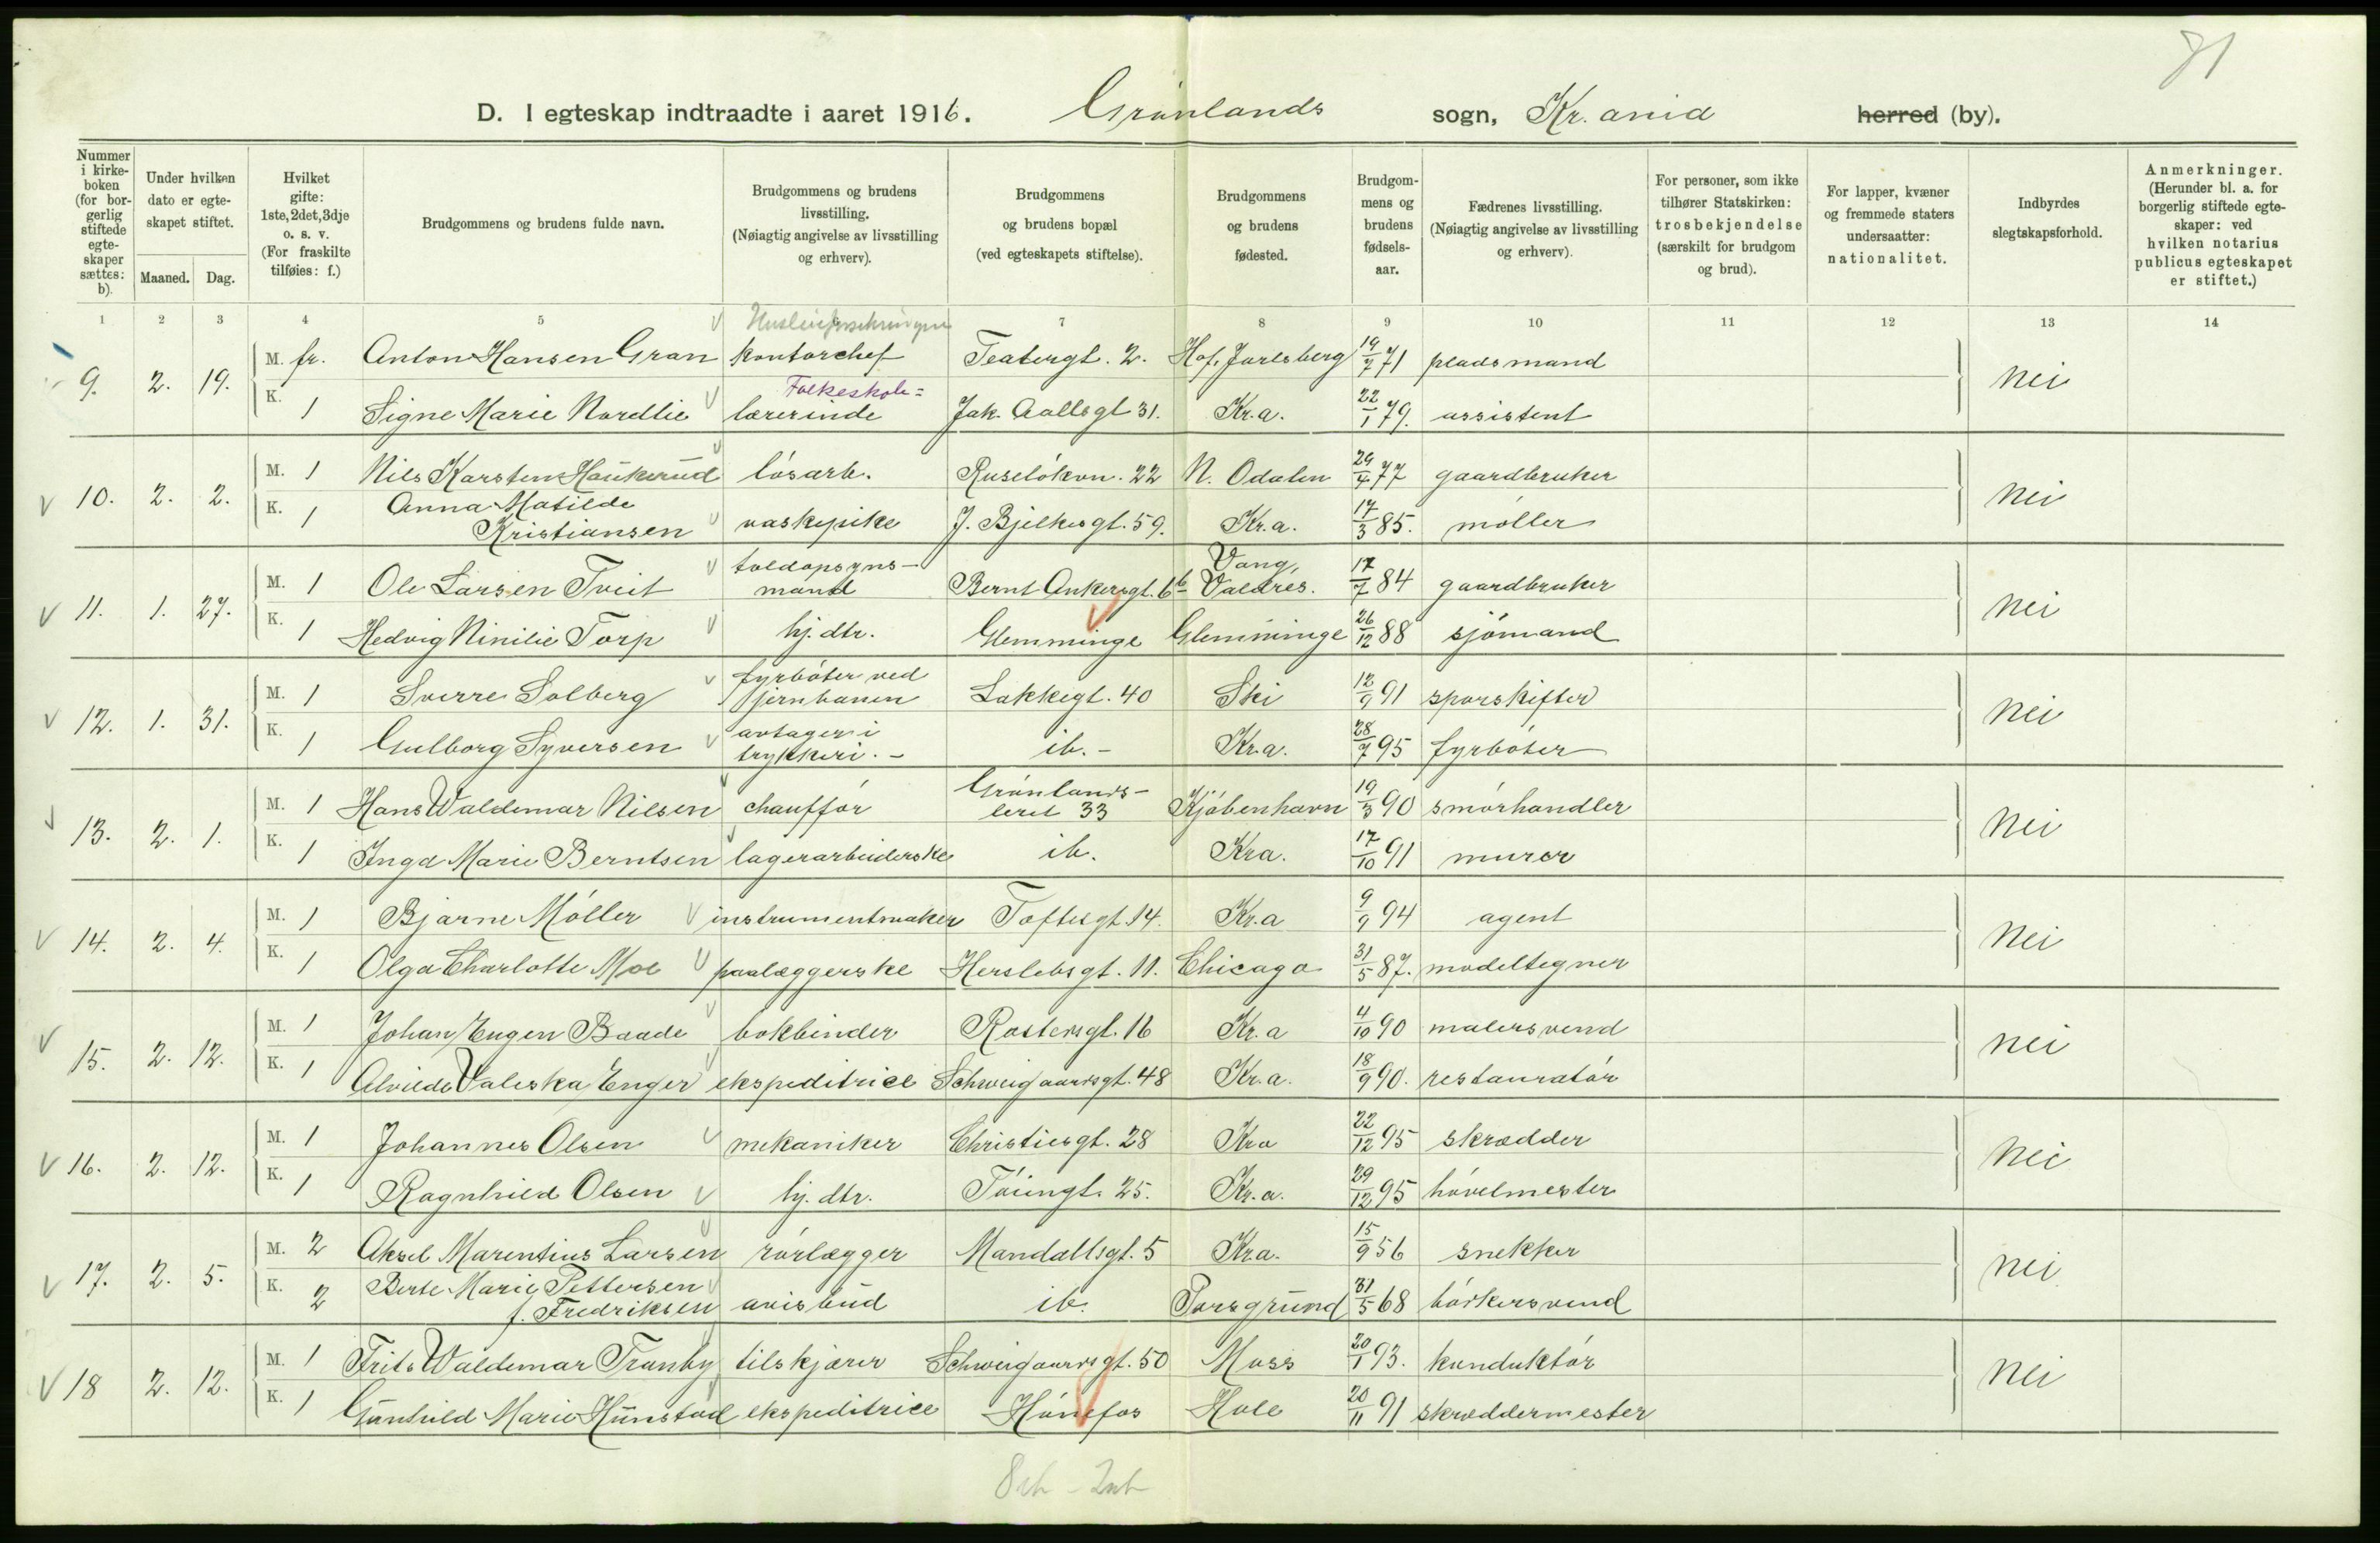 81
D. I egteskap indtraadte i aaret 1916. Grønlands sogn, Kr.ania herred (by).
Nummer i kirkeboken (for borgerlig stiftede egteskaper sættes: b).
Under hvilken dato er egteskapet stiftet.
Maaned. Dag.
Hvilket gifte: 1ste, 2det, 3dje o. s. v. (For fraskilte tilføies: f.)
Brudgommens og brudens fulde navn.
Brudgommens og brudens livsstilling. (Nøiagtig angivelse av livsstilling og erhverv).
Brudgommens og brudens bopæl (ved egteskapets stiftelse).
Brudgommens og brudens fødested.
Brudgommens og brudens fødselsaar.
Fædrenes livsstilling. (Nøiagtig angivelse av livsstilling og erhverv).
For personer, som ikke tilhører Statskirken: trosbekjendelse (særskilt for brudgom og brud).
For lapper, kvæner og fremmede staters undersaatter: nationalitet.
Indbyrdes slegtskapsforhold.
Anmerkninger. (Herunder bl. a. for borgerlig stiftede egteskaper: ved hvilken notarius publicus egteskapet er stiftet.)
1 2 3 4 5 7 8 9 10 11 12 13 14
9. 2. 19. M. fr. Anton Hansen Gran kontorchef Teatergt. 2. Hof, Jarlsberg 19/7 71 pladsmand nei
K. 1 Signe Marie Nordlie Folkeskole= lærerinde Jak. Aallsgt 31. Kr.a. 22/1 79. assistent
10. 2. 2. M. 1 Nils Karsten Haukerud løsarb. Ruseløkvn. 22 N. Odalen 29/4 77 gaardbruker nei
K. 1 Anna Matilde Kristiansen vaskepike J. Bjelkesgt. 59. Kr.a. 17/3 85. møller
11. 1. 27. M. 1 Ole Larsen Tveit toldopsynsmand Bernt Ankersgt. 6b Vang, Valdres. 17/7 84 gaardbruker nei
K. 1 Hedvig Ninilie Torp hj. dtr. Glemminge Glemminge 26/12 88 sjømand
12. 1. 31. M. 1 Sverre Solberg fyrbøter ved jernbanen Lakkegt. 40 Ski 12/9 91 sporskifter nei
K. 1 Gulborg Syversen avtager i trykkeri. - ib. - Kr.a. 28/7 95 fyrbøter
13. 2. 1. M. 1 Hans Waldemar Nilsen chauffør Grønlandsleret 33 Kjøbenhavn 19/3 90 smørhandler nei
K. 1 Inga Marie Berntsen lagerarbeiderske ib. Kr.a. 17/10 91 murer
14. 2. 4. M. 1 Bjarne Møller instrumentmaker Toftesgt. 14. Kr.a 9/9 94 agent nei
K. 1 Olga Charlotte Moe paalæggerske Herslebsgt. 11. Chicago 31/5 87. modeltegner
15. 2. 12. M. 1 Johan Eugen Baade bokbinder Rostensgt. 16 Kr.a 4/10 90 malersvend nei
K. 1 Alvilde Valeska Enger ekspeditrice Schweigaardsgt. 48 Kr.a. 18/9 90. restauratør
16. 2. 12. M. 1 Johannes Olsen mekaniker Christiesgt. 28 Kra 22/12 95 skrædder nei
K. 1 Ragnhild Olsen hj. dtr. Tøiengt. 25. Kr.a. 29/12 95 høvelmester
17. 2. 5. M. 2 Aksel Marentius Larsen rørlægger Mandallsgt. 5 Kra. 15/9 56 snekker nei
K. 2 Berte Marie Pettersen f. Fredriksen avisbud ib. Porsgrund 31/5 68 bøtkersvend
18 2. 12. M. 1 Frits Waldemar Tranby tilskjærer Schweigaardsgt. 50 Moss 20/1 93. konduktør nei
K. 1 Gunhild Marie Hunstad ekspeditrice Hønefos Hole 20/11 91 skræddermester